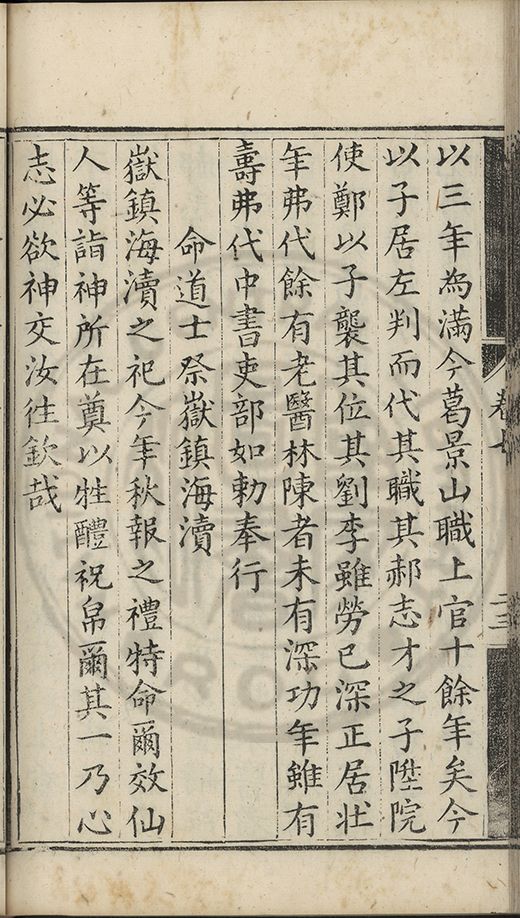 以三年為滿今葛景山職上官十餘年矣今
以子居左判而代其職其郝志才之子陞院
使鄭以子襲其位其劉李雖勞已深正居壯
年弗代餘有老醫林陳者未有深功年雖有
壽弗代中書吏部如勅奉行
命道士祭嶽鎮海瀆
嶽鎮海瀆之祀今年秋報之禮特命爾效仙
人等詣神所在奠以牲醴祝帛爾其一乃心
志必欲神交汝往欽哉